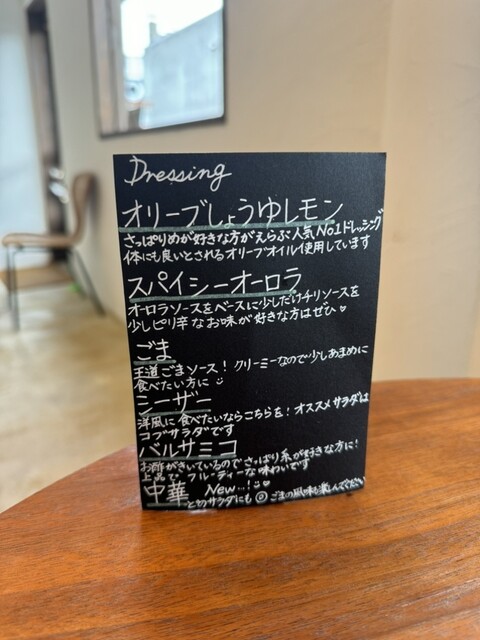 Dressing
オリーブしょうゆレモン
さっぱりめが好きな方がえらぶ人気No1ドレッシング
体にも良いとされるオリーブオイル使用しています
スパイシーオーロラ
オーロラソースをベースに少しだけチリソースを
少しピリ辛なお味が好きな方はぜひ♡
ごま
王道ごまソース! クリーミーなので少しあまめに
食べたい方に
シーザー
洋風に食べたいならこちらを! オススメサラダは
コブサラダです
バルサミコ
お酢がきいているのでさっぱり系が好きな方に!
上品で フルーティーな味わいです
中華 New...!
どのサラダにも◎ ごまの風味を楽しんでください